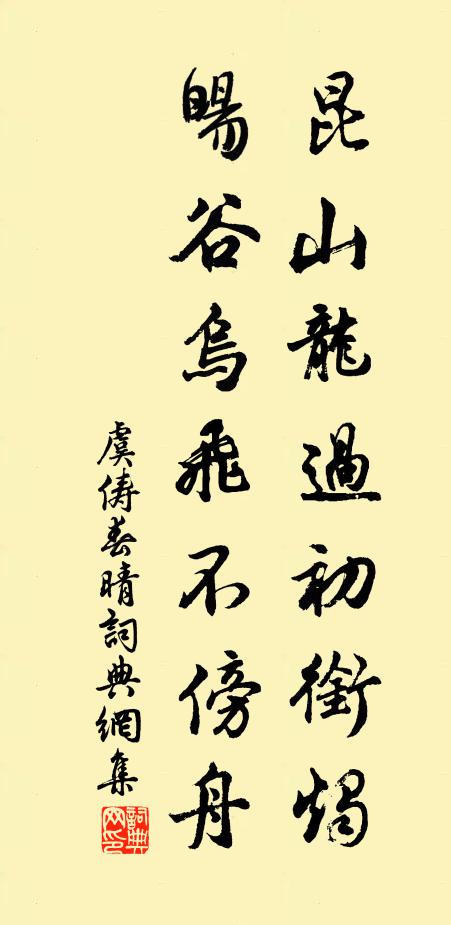 昆山龍過初銜燭
暘谷烏飛不傍舟
虞儔春晴詞典網集
詞典网印